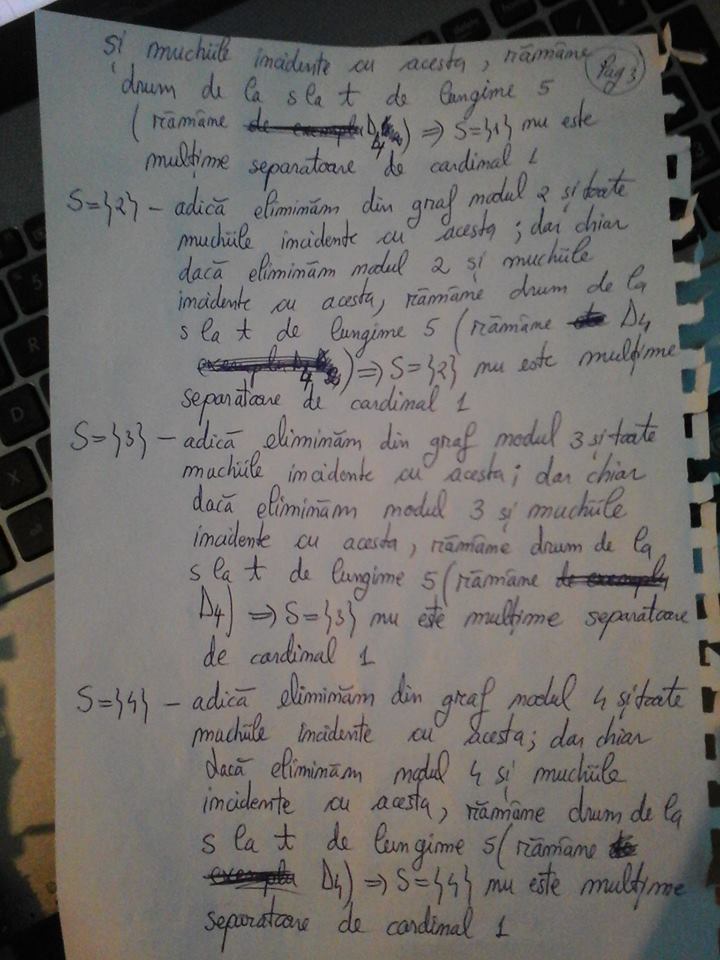 și muchiile incidente cu acesta, rămâne
Pag 3
drum de la s la t de lungime 5
(rămâne de exemplu D4) ⇒ S={1} nu este
mulțime separatoare de cardinal 1
S={2} – adică eliminăm din graf nodul 2 și toate
muchiile incidente cu acesta; dar chiar
dacă eliminăm nodul 2 și muchiile
incidente cu acesta, rămâne drum de la
s la t de lungime 5 (rămâne de D4
exemplu D4) ⇒ S={2} nu este mulțime
separatoare de cardinal 1
S={3} – adică eliminăm din graf nodul 3 și toate
muchiile incidente cu acesta; dar chiar
dacă eliminăm nodul 3 și muchiile
incidente cu acesta, rămâne drum de la
s la t de lungime 5 (rămâne de exemplu
D4) ⇒ S={3} nu este mulțime separatoare
de cardinal 1
S={4} – adică eliminăm din graf nodul 4 și toate
muchiile incidente cu acesta; dar chiar
dacă eliminăm nodul 4 și muchiile
incidente cu acesta, rămâne drum de la
s la t de lungime 5 (rămâne de
exemplu D4) ⇒ S={4} nu este mulțime
separatoare de cardinal 1